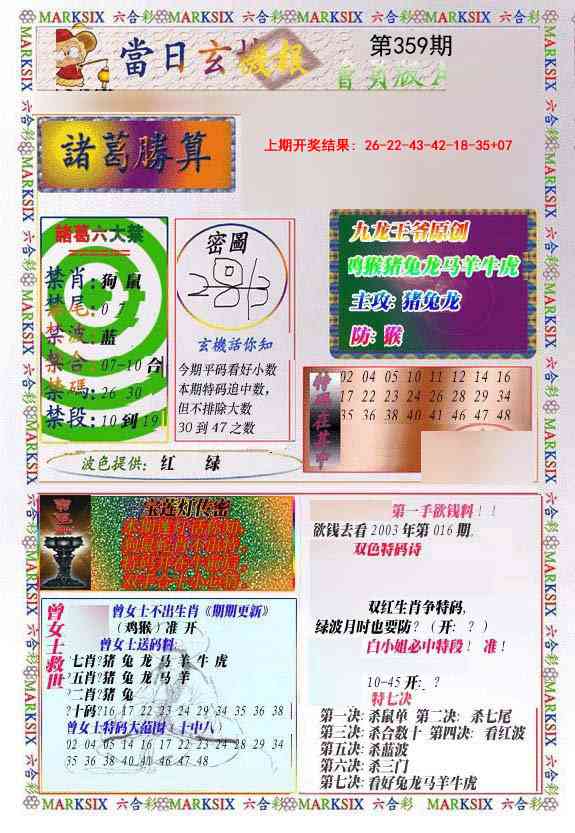 MARKSIX 六合彩 MARKSIX 六合彩 MARKSIX 六合彩 MARKSIX 六合彩
當日玄機報
第359期
諸葛勝算
上期开奖结果: 26-22-43-42-18-35+07
諸葛六大禁
禁肖: 狗 鼠
禁尾: 0 7
禁波: 蓝
禁合: 07-10 合
禁碼: 26 30
禁段: 10 到 19
密圖
玄機話你知
今期平码看好小数
本期特码追中数,
但不排除大数
30 到 47 之数
九龙王爷原创
鸡猴猪兔龙马羊牛虎
主攻: 猪兔龙
防: 猴
02 04 05 10 11 12 14 16
17 22 23 24 26 28 29 34
35 36 38 40 41 46 47 48
波色提供: 红 绿
宝莲灯传密
第一手欲钱料!!
欲钱去看 2003 年第 016 期.
双色特码诗
双红生肖争特码,
绿波月时也要防? (开: ? )
白小姐必中特段! 准!
10-45 开: ?
特七决
第一决: 杀鼠单 第二决: 杀七尾
第三决: 杀合数十 第四决: 看红波
第五决: 杀蓝波
第六决: 杀三门
第七决: 看好兔龙马羊牛虎
曾女士救世
曾女士不出生肖《期期更新》
(鸡猴) 准 开
曾女士送码料:
?七肖?猪 兔 龙 马 羊 牛 虎
?五肖?猪 兔 龙 马 羊
?二肖?猪 兔
?十码?16 17 22 23 24 29 34 35 36 38
曾女士特码大范围 (十中八)
02 04 05 14 16 17 22 23 24 28 29 34
35 36 38 40 41 46 47 48
MARKSIX 六合彩 MARKSIX 六合彩 MARKSIX 六合彩 MARKSIX 六合彩